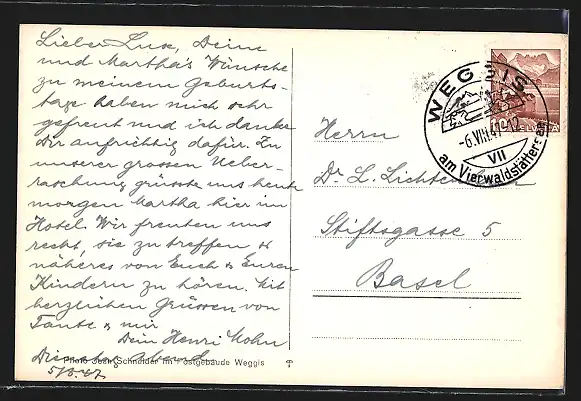 Lieber Lux, Deine
und Martha's Wünsche
zu meinem Geburts-
tage haben mich sehr
gefreut und ich danke
Dir aufrichtig dafür. Zu
unserer grossen Ueber-
raschung grüsste uns heute
morgen Martha hier im
Hotel. Wir freuten uns
recht, sie zu treffen &
näheres von Euch & Euren
Kindern zu hören. Mit
herzlichen Grüssen von
Tante & mir
Dein Henri
Dienstag abend
5/8.47
Photo Jean Schneider im Postgebäude Weggis
WEGGIS
-6.VIII.47-12
VII
am Vierwaldstättersee
HELVETIA
Herrn
Dr. L.
Stiftsgasse 5
Basel